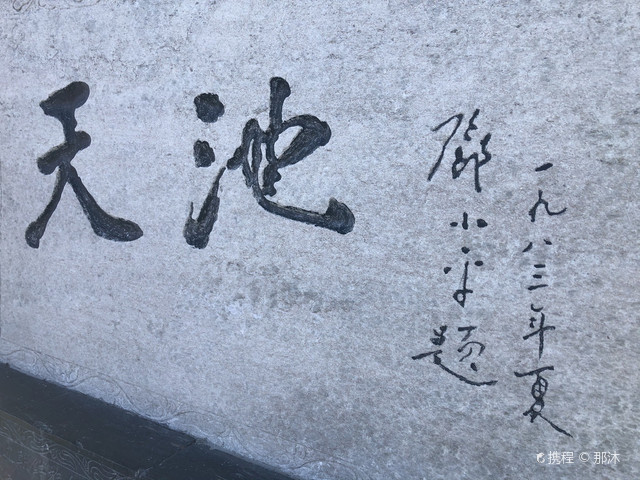 天池
鄧小平題
一九八三年夏
携程 © 那沐